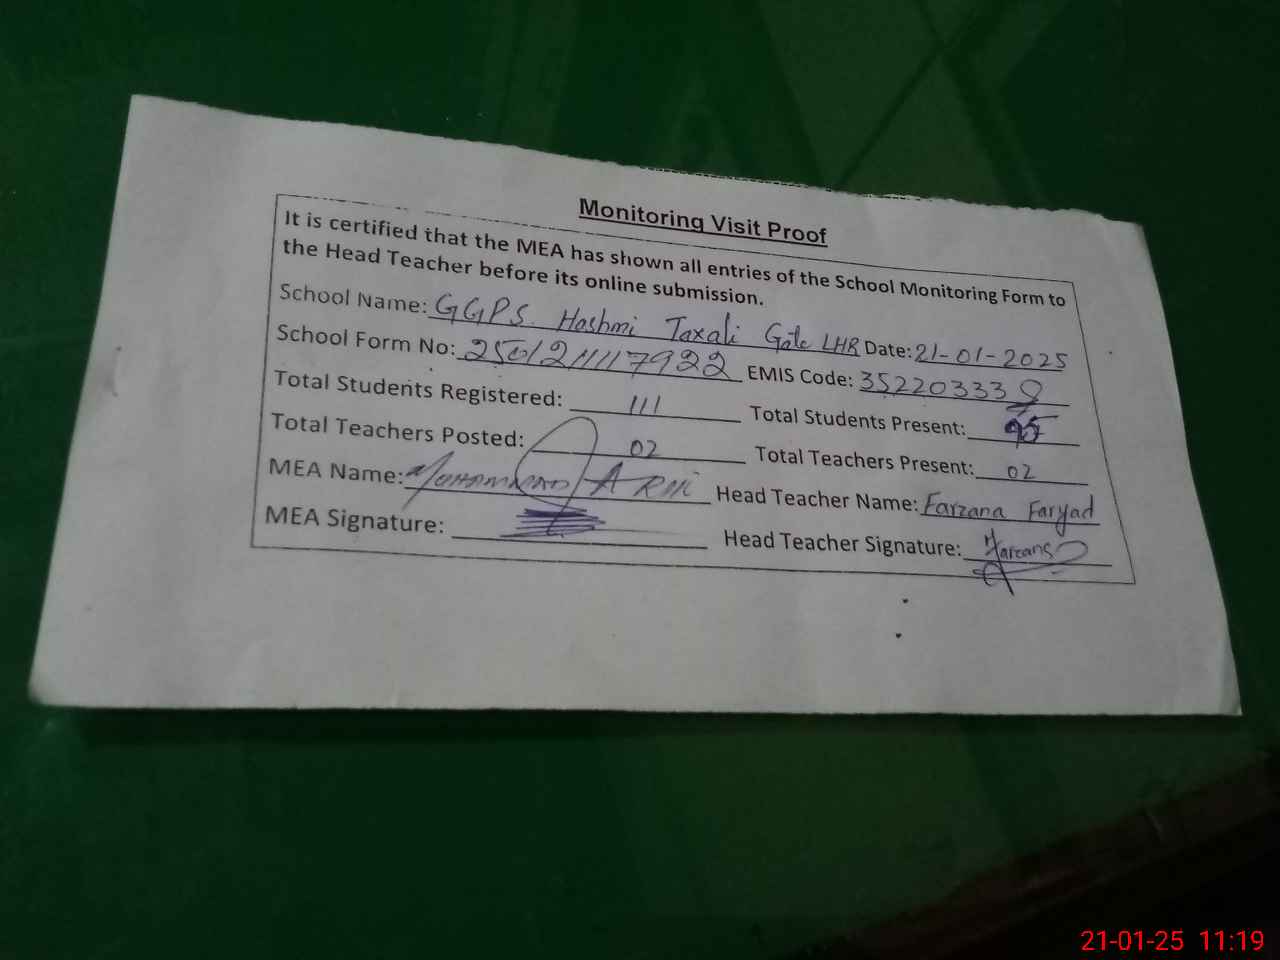 Monitoring Visit Proof
It is certified that the MEA has shown all entries of the School Monitoring Form to
the Head Teacher before its online submission.
School Name: GGPS. Hashmi Taxali Gate LHR Date: 21-01-2025
School Form No: EMIS Code: 352203338
Total Students Registered: 111 Total Students Present: 95
Total Teachers Posted: 02 Total Teachers Present: 02
MEA Name: Muhammad Head Teacher Name: Farzana Faryad
MEA Signature: Head Teacher Signature: Farzana
21-01-25 11:19